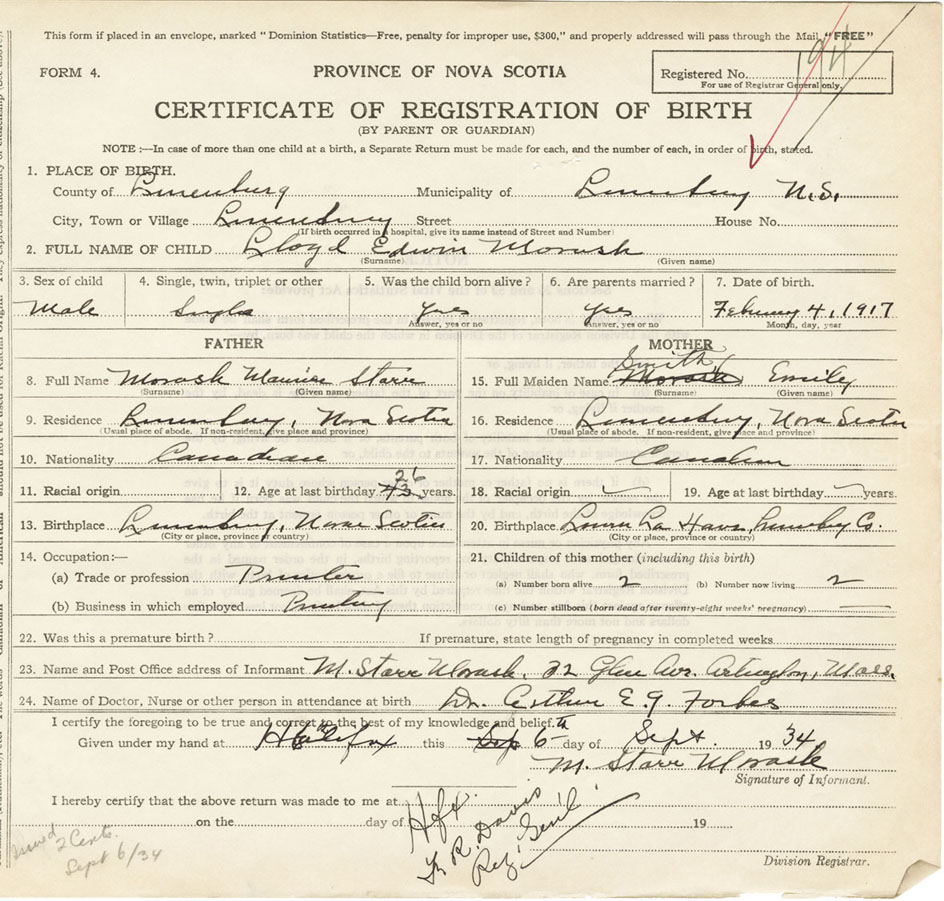 This form if placed in an envelope, marked "Dominion Statistics—Free, penalty for improper use, $300," and properly addressed will pass through the Mail "FREE"
FORM 4.
PROVINCE OF NOVA SCOTIA
Registered No. 194
For use of Registrar General only.
CERTIFICATE OF REGISTRATION OF BIRTH
(BY PARENT OR GUARDIAN)
NOTE :—In case of more than one child at a birth, a Separate Return must be made for each, and the number of each, in order of birth, stated.
1. PLACE OF BIRTH.
County of Lunenburg Municipality of Lunenburg N.S.
City, Town or Village Lunenburg Street House No.
(If birth occurred in a hospital, give its name instead of Street and Number)
2. FULL NAME OF CHILD Lloyd Edwin Morash
(Surname) (Given name)
3. Sex of child 4. Single, twin, triplet or other 5. Was the child born alive ? 6. Are parents married ? 7. Date of birth.
Male Single Yes Yes February 4, 1917
Answer, yes or no Answer, yes or no Month, day, year
FATHER MOTHER
Smith
8. Full Name Morash Maurice Starr 15. Full Maiden Name Morash Emily
(Surname) (Given name) (Surname) (Given name)
9. Residence Lunenburg, Nova Scotia 16. Residence Lunenburg, Nova Scotia
(Usual place of abode. If non-resident, give place and province) (Usual place of abode. If non-resident, give place and province)
10. Nationality Canadian 17. Nationality Canadian
26
11. Racial origin 12. Age at last birthday 43 years. 18. Racial origin 19. Age at last birthday years.
13. Birthplace Lunenburg, Nova Scotia 20. Birthplace La Have, Lunenburg Co.
(City or place, province or country) (City or place, province or country)
14. Occupation:— 21. Children of this mother (including this birth)
(a) Trade or profession Printer (a) Number born alive 2 (b) Number now living 2
(b) Business in which employed Printing (c) Number stillborn (born dead after twenty-eight weeks' pregnancy)
22. Was this a premature birth ? If premature, state length of pregnancy in completed weeks
23. Name and Post Office address of Informant M. Starr Morash, 32 Glen Ave. Arlington, Mass.
24. Name of Doctor, Nurse or other person in attendance at birth Dr. Arthur E. G. Forbes
I certify the foregoing to be true and correct to the best of my knowledge and belief.
Given under my hand at Halifax this Sep 6th day of Sept. 1934
M. Starr Morash
Signature of Informant.
I hereby certify that the above return was made to me at Hfx.
on the day of 19
F. R. Davis
Reg. Gen'l.
Division Registrar.
2 Certs.
Sept 6/34